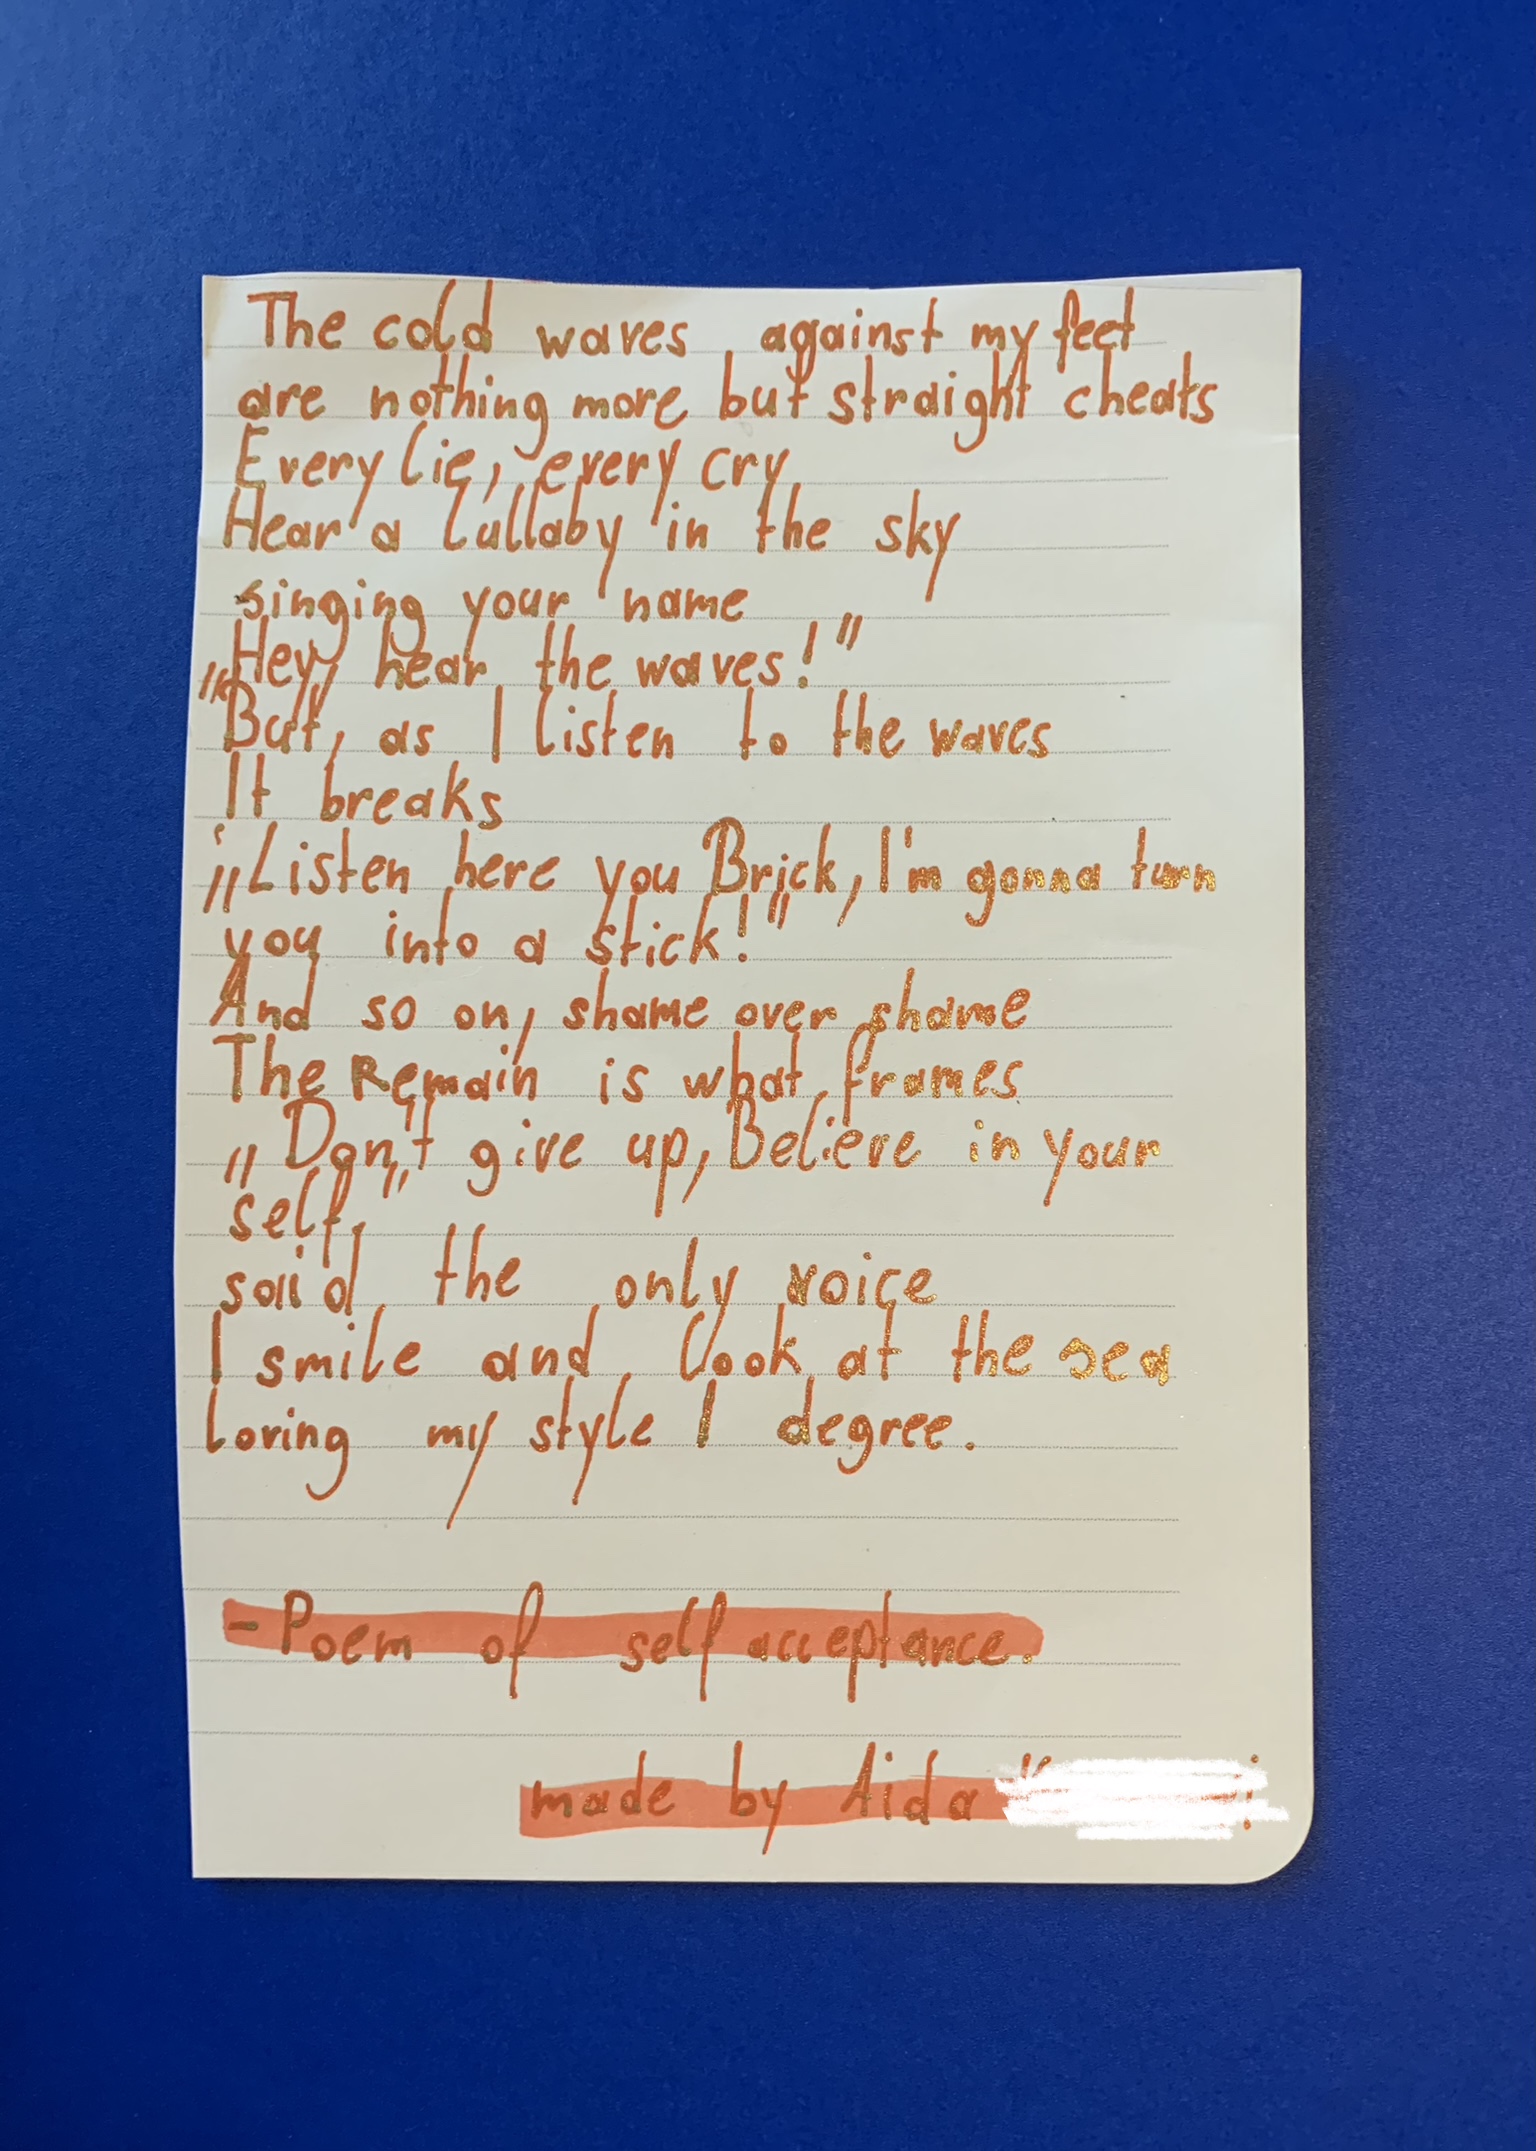 The cold waves against my feet
are nothing more but straight cheats
Every lie, every cry
Hear a lullaby in the sky
singing your name
„Hey, hear the waves!"
"But, as I listen to the waves
It breaks
„Listen here you Brick, I'm gonna turn
you into a stick!"
And so on, shame over shame
The Remain is what frames
„Don't give up, Believe in your
self."
said the only voice
I smile and look at the sea
loving my style I degree.
- Poem of self acceptance.
made by Aida